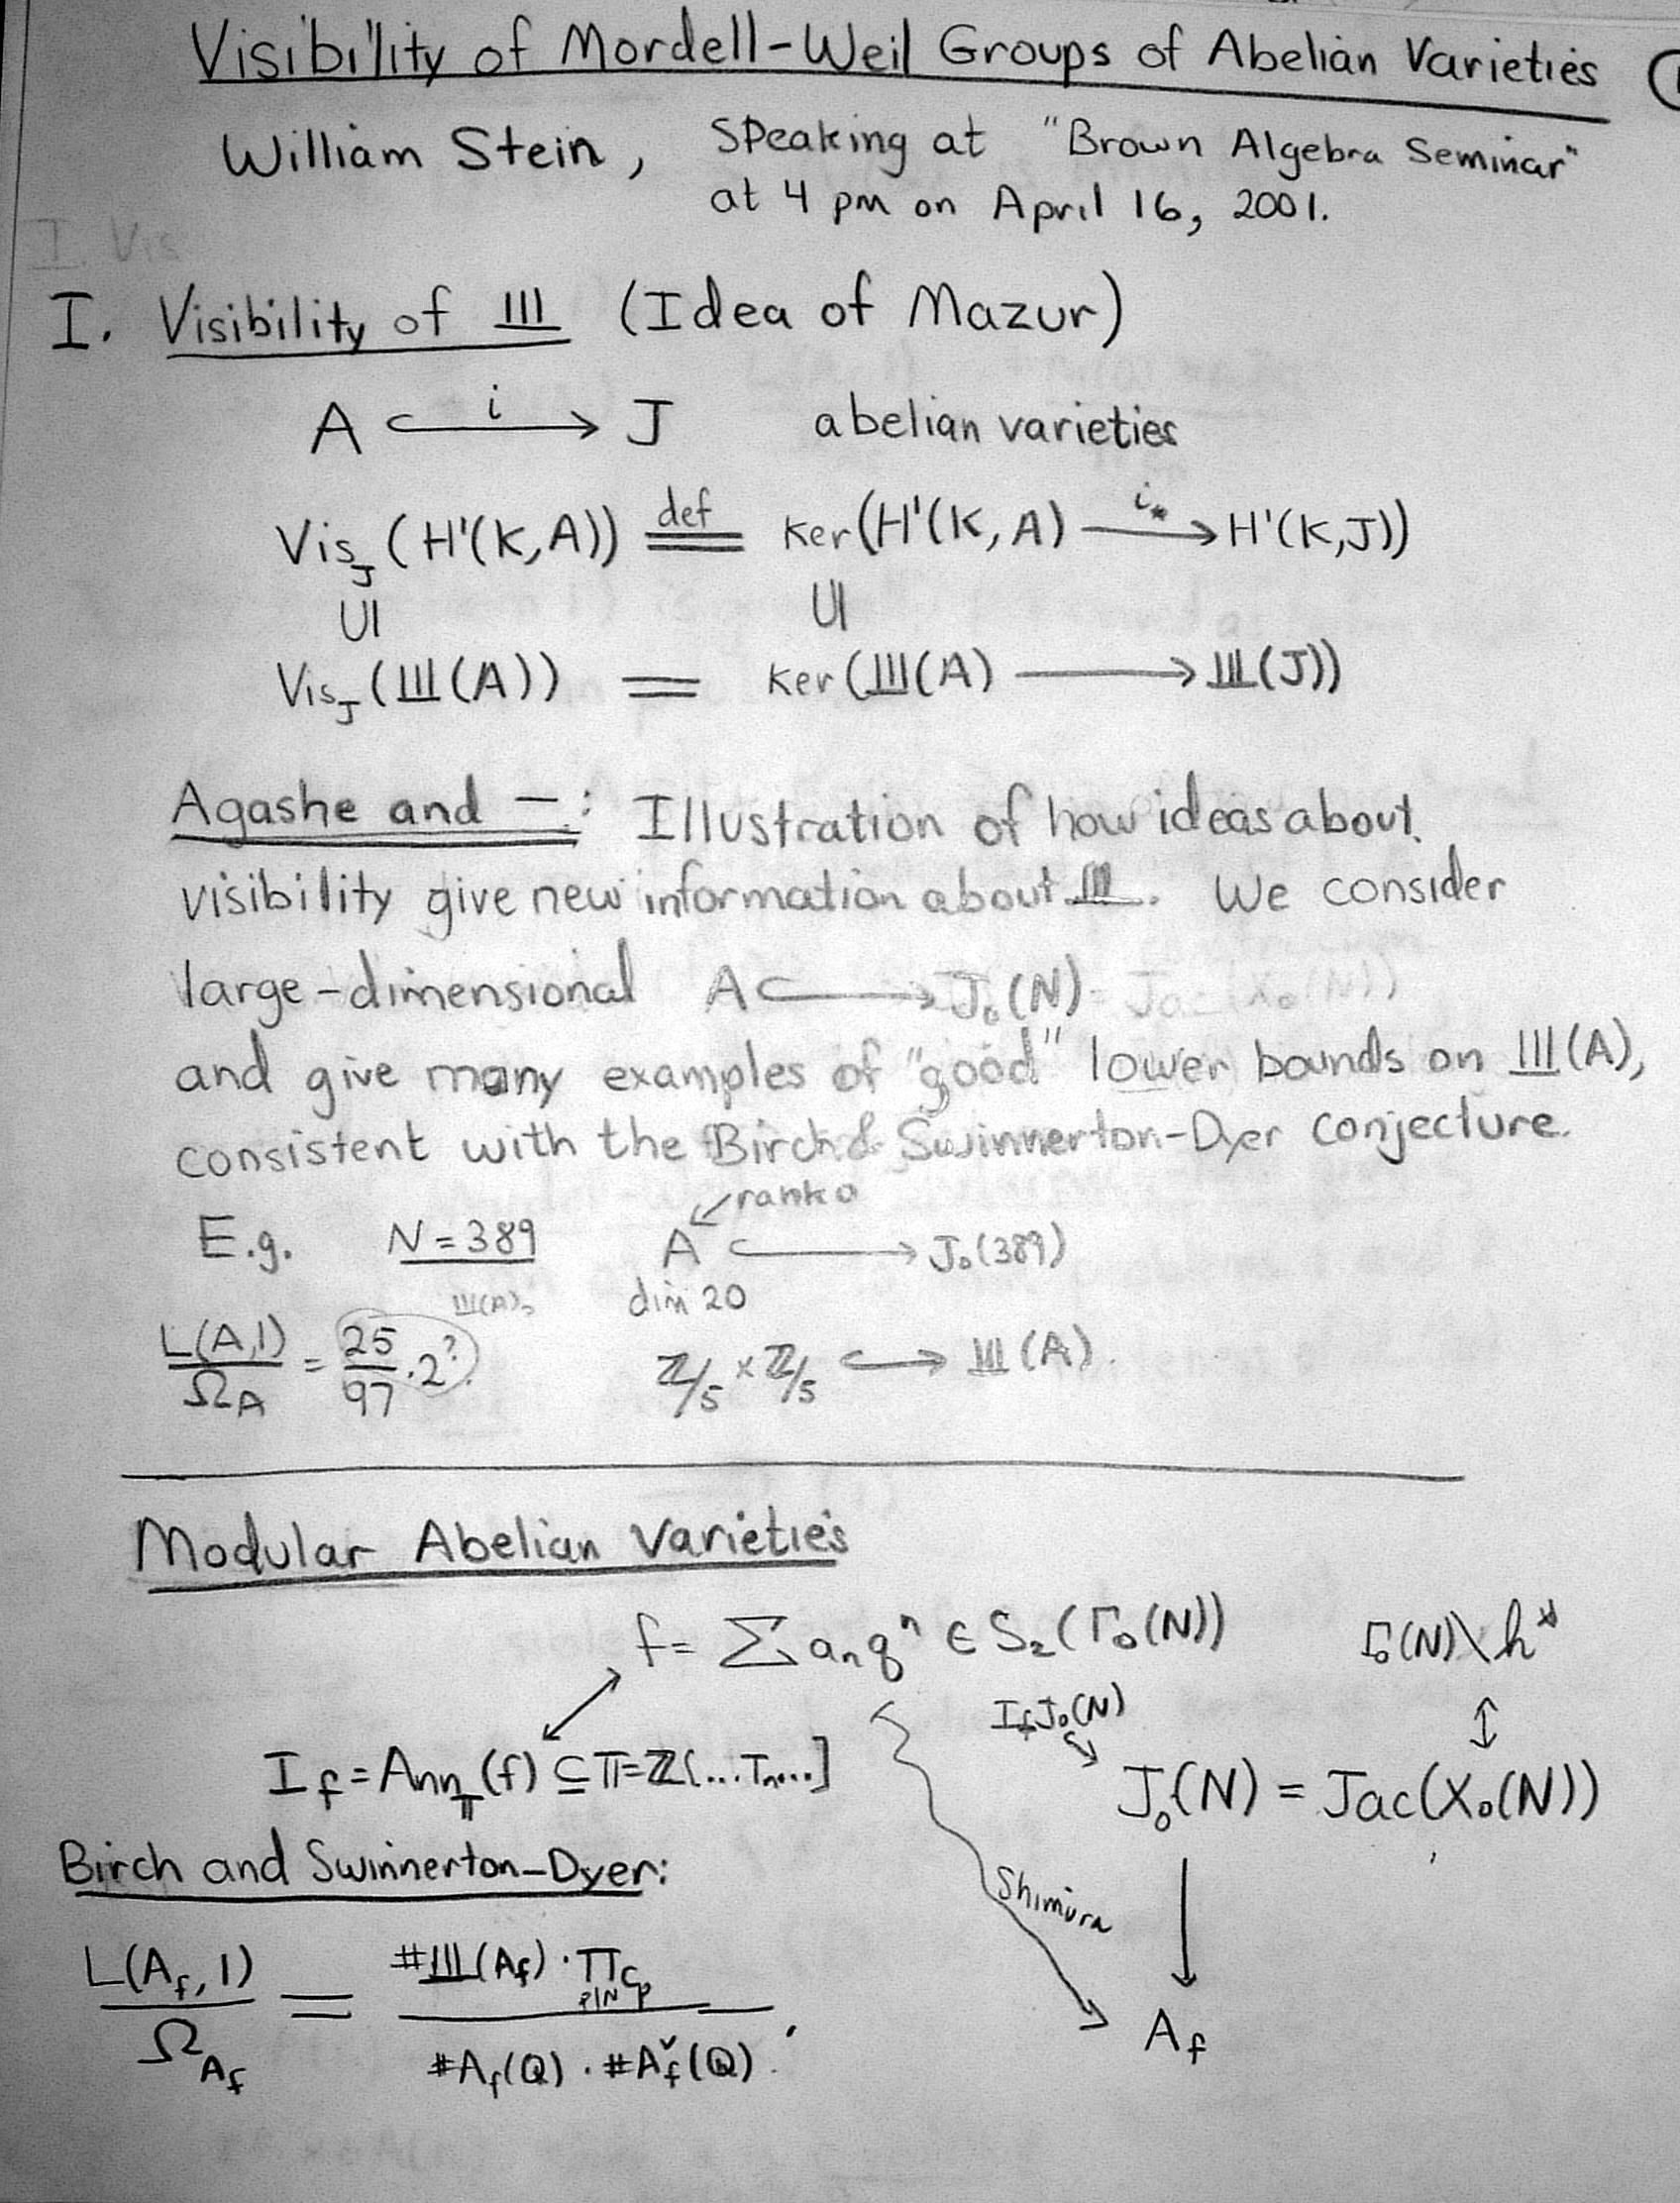 Visibility of Mordell-Weil Groups of Abelian Varieties
William Stein, Speaking at "Brown Algebra Seminar"
at 4 pm on April 16, 2001.
I. Vis
I. Visibility of Ш (Idea of Mazur)
A ↪ J abelian varieties
i
Vis_J (H¹(K,A)) =def= Ker(H¹(K,A) —i_*→ H¹(K,J))
∪| ∪|
Vis_J (Ш(A)) = Ker(Ш(A) ⟶ Ш(J))
Agashe and —: Illustration of how ideas about
visibility give new information about Ш. We consider
large-dimensional A ↪ J₀(N) = Jac(X₀(N))
and give many examples of "good" lower bounds on Ш(A),
consistent with the Birch & Swinnerton-Dyer conjecture.
↙ rank 0
E.g. N = 389 A ↪ J₀(389)
dim 20
L(A,1)/Ω_A = 25/97 · 2^? ℤ/5 × ℤ/5 ↪ Ш(A).
Modular Abelian Varieties
f = ∑ a_n q^n ∈ S₂(Γ₀(N)) Γ₀(N)\h*
I_f J₀(N) ↕
I_f = Ann_𝕋(f) ⊆ 𝕋 = ℤ[...T_n...] J₀(N) = Jac(X₀(N))
Birch and Swinnerton-Dyer:
Shimura ↓
L(A_f, 1)/Ω_{A_f} = #Ш(A_f) · ∏_{p|N} c_p / #A_f(Q) · #A_f^∨(Q).
A_f